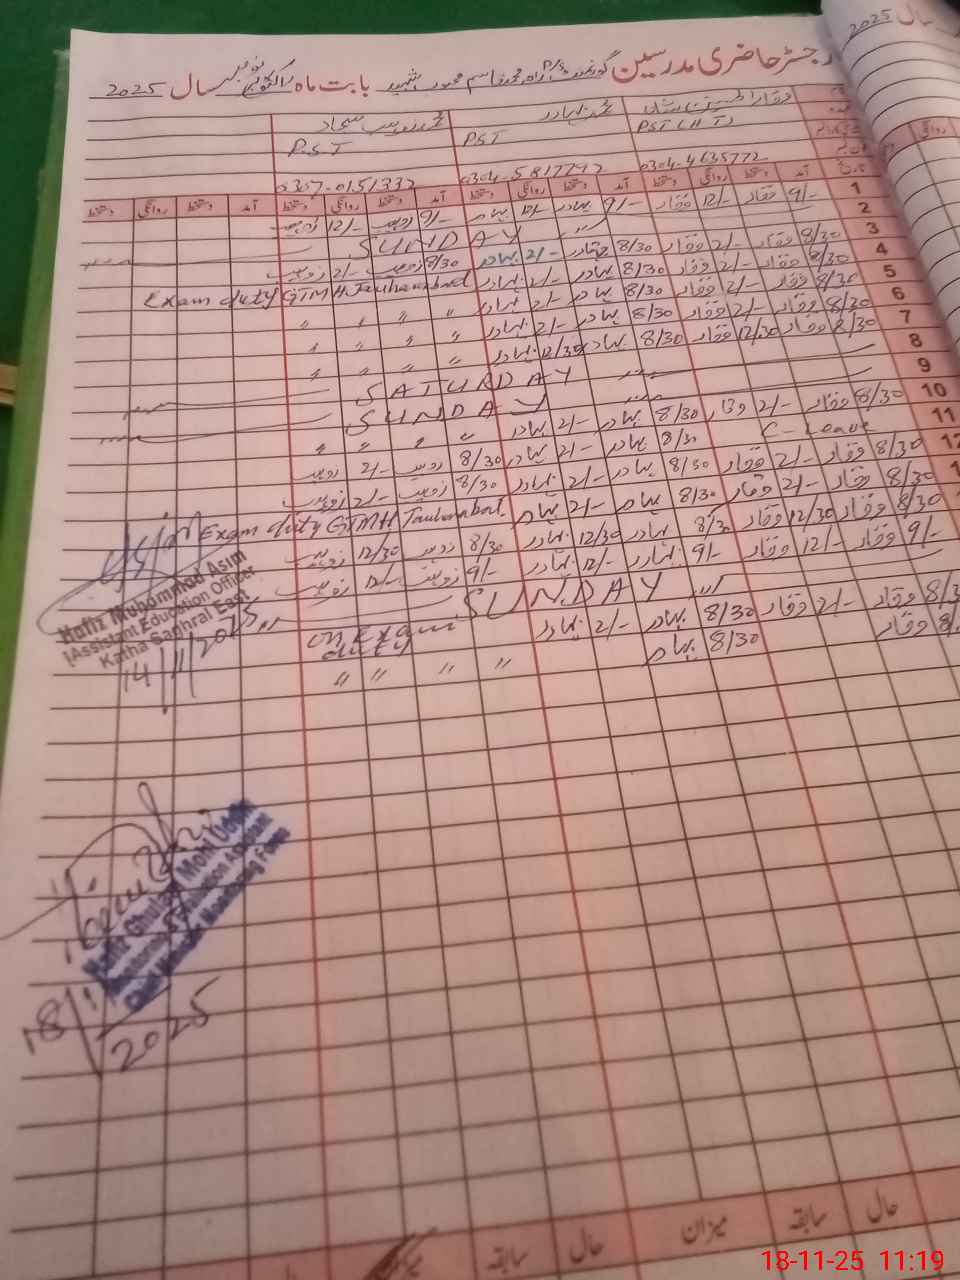 رجسٹر حاضری مدرسین گورنمنٹ P/S محمد قاسم بابت ماہ نومبر سال 2025
سال 2025
PST PST P.S.T
0304-4635772 0304-5817742 0307-0151332
آمد دستخط روانگی دستخط آمد دستخط روانگی دستخط آمد دستخط روانگی دستخط آمد دستخط روانگی دستخط
1 9/- وقار 12/- وقار 9/- بہادر 12/- بہادر 9/- زوہیب 12/- زوہیب
2 SUNDAY
3 8/30 وقار 2/- وقار 8/30 بہادر 2/- بہادر 8/30 زوہیب 2/- زوہیب
4 8/30 وقار 2/- وقار 8/30 بہادر 2/- بہادر Exam duty GTMH Jauharabad
5 8/30 وقار 2/- وقار 8/30 بہادر 2/- بہادر " " " "
6 8/30 وقار 2/- وقار 8/30 بہادر 2/- بہادر " " " "
7 8/30 وقار 12/30 وقار 8/30 بہادر 12/30 بہادر " " " "
8 SATURDAY
9 SUNDAY
10 8/30 وقار 2/- وقار 8/30 بہادر 2/- بہادر " " " "
11 C-Leave 8/30 بہادر 2/- بہادر 8/30 زوہیب 2/- زوہیب
8/30 وقار 2/- وقار 8/30 بہادر 2/- بہادر 8/30 زوہیب 2/- زوہیب
8/30 وقار 2/- وقار 8/30 بہادر 2/- بہادر Exam duty GTMH Jauharabad
8/30 وقار 12/30 وقار 8/30 بہادر 12/30 بہادر 8/30 زوہیب 12/30 زوہیب
9/- وقار 12/- وقار 9/- بہادر 12/- بہادر 9/- زوہیب 12/- زوہیب
SUNDAY
وقار 2/- وقار 8/30 بہادر 2/- بہادر on Exam duty
وقار 8/30 بہادر " " " "
Hafiz Muhammad Asim
(Assistant Education Officer
Katha Saghral East
14/11/2025
Hafiz Ghulam Mohi Ud Din
Monitoring & Evaluation Assistant
Chief Minister Monitoring Force
18/11
2025
حال سابقہ میزان حال سابقہ
18-11-25 11:19